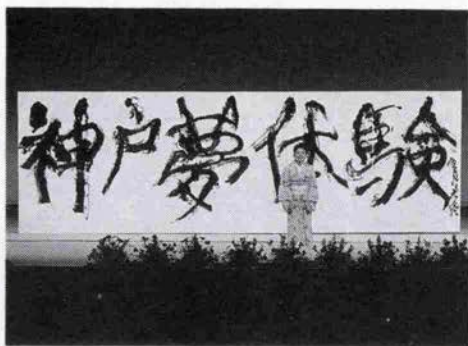 神戸夢体験